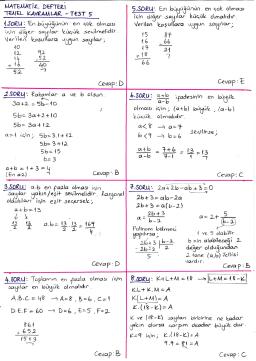 MATEMATİK DEFTERİ
TEMEL KAVRAMLAR - TEST 5
1.SORU: En büyüğünün en çok olması
için diğer sayılar küçük seçilmelidir.
Verilen koşullara uygun sayılar;
10
12
+ 14
52
92
- 52
Cevap: D
2.SORU: Rakamlar a ve b olsun
3a+2 = 5b-10
3a+2+10 = 5b
3a+12 = 5b
a=1 için; 5b=3.1+12
5b=3+12
5b=15
b=3
a+b = 1+3 = 4
Cevap: B
3.SORU: a.b en fazla olması için
sayılar yakın/eşit seçilmelidir.
oldukları için eşit seçersek;
a+b=13
a.b = 13/2 . 13/2 = 169/4
Cevap: D
4.SORU: Toplamın en fazla olması için
sayılar en büyük olmalıdır.
A.B.C = 48 → A=8, B=6, C=1
D.E.F = 60 → D=6, E=5, F=2
861
+ 652
1513
Cevap: B
5.SORU: En büyüğünün en çok olması
için diğer sayılar küçük olmalıdır.
Verilen koşullara uygun sayılar;
15
16
17
+ 18
66
Cevap: E
6.SORU: a+b/a-b ifadesinin en büyük
olması için; (a+b) büyük, (a-b)
küçük olmalıdır.
a<8 → a=7
b<9 → b=6
seçilirse;
a+b/a-b = 7+6/7-1 = 13/1 = 13
Cevap: C
7.SORU: 2a+2b-ab+3=0
2b+3 = ab-2a
2b+3 = a(b-2)
a = 2b+3/b-2
Polinom bölmesi
yapılırsa;
a = 2 + 7/b-2
Cevap: B
8.SORU: K+L+M=18 → L+M=18-K
KL+K.M=A
K(L+M)=A
K.(18-K)=A
K ve (18-K) sayıları birbirine ne kadar
yakın olursa çarpım o kadar büyük olur.
K=9 için; K.(18-K)=A
9.9 = 81 = A
Cevap: C